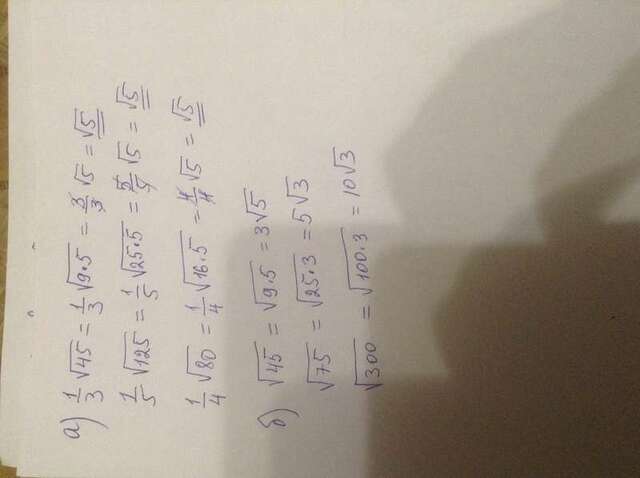 а) 1/3 √45 = 1/3 √9·5 = 3/3 √5 = √5
1/5 √125 = 1/5 √25·5 = 5/5 √5 = √5
1/4 √80 = 1/4 √16·5 = 4/4 √5 = √5
б) √45 = √9·5 = 3√5
√75 = √25·3 = 5√3
√300 = √100·3 = 10√3